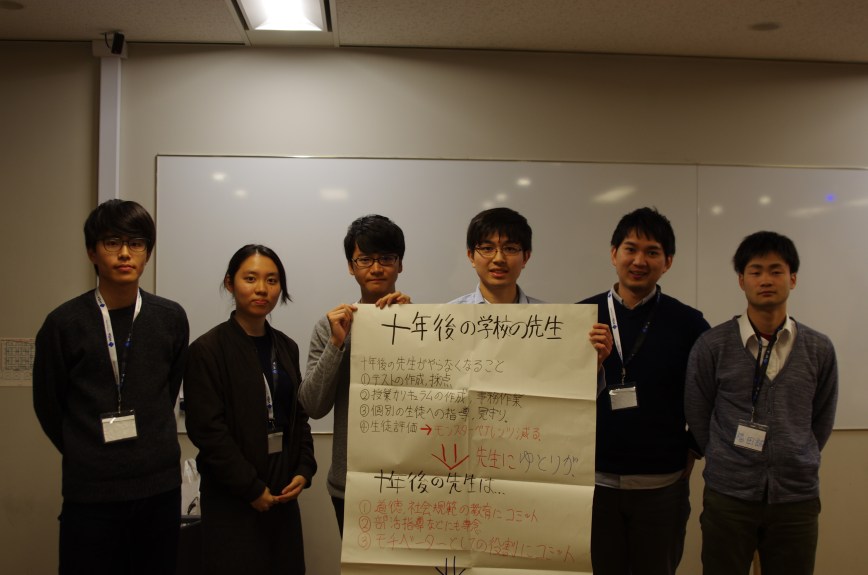 十年後の学校の先生
十年後の先生がやらなくなること
①テストの作成、採点
②授業カリキュラムの作成、事務作業
③個別の生徒への指導、見守り。
④生徒評価→モンスターペアレンツ減る
先生にゆとりが。
十年後の先生は…
①道徳、社会規範の教育にコミット
②部活指導などにも専念
③モチベーターとしての役割にコミット